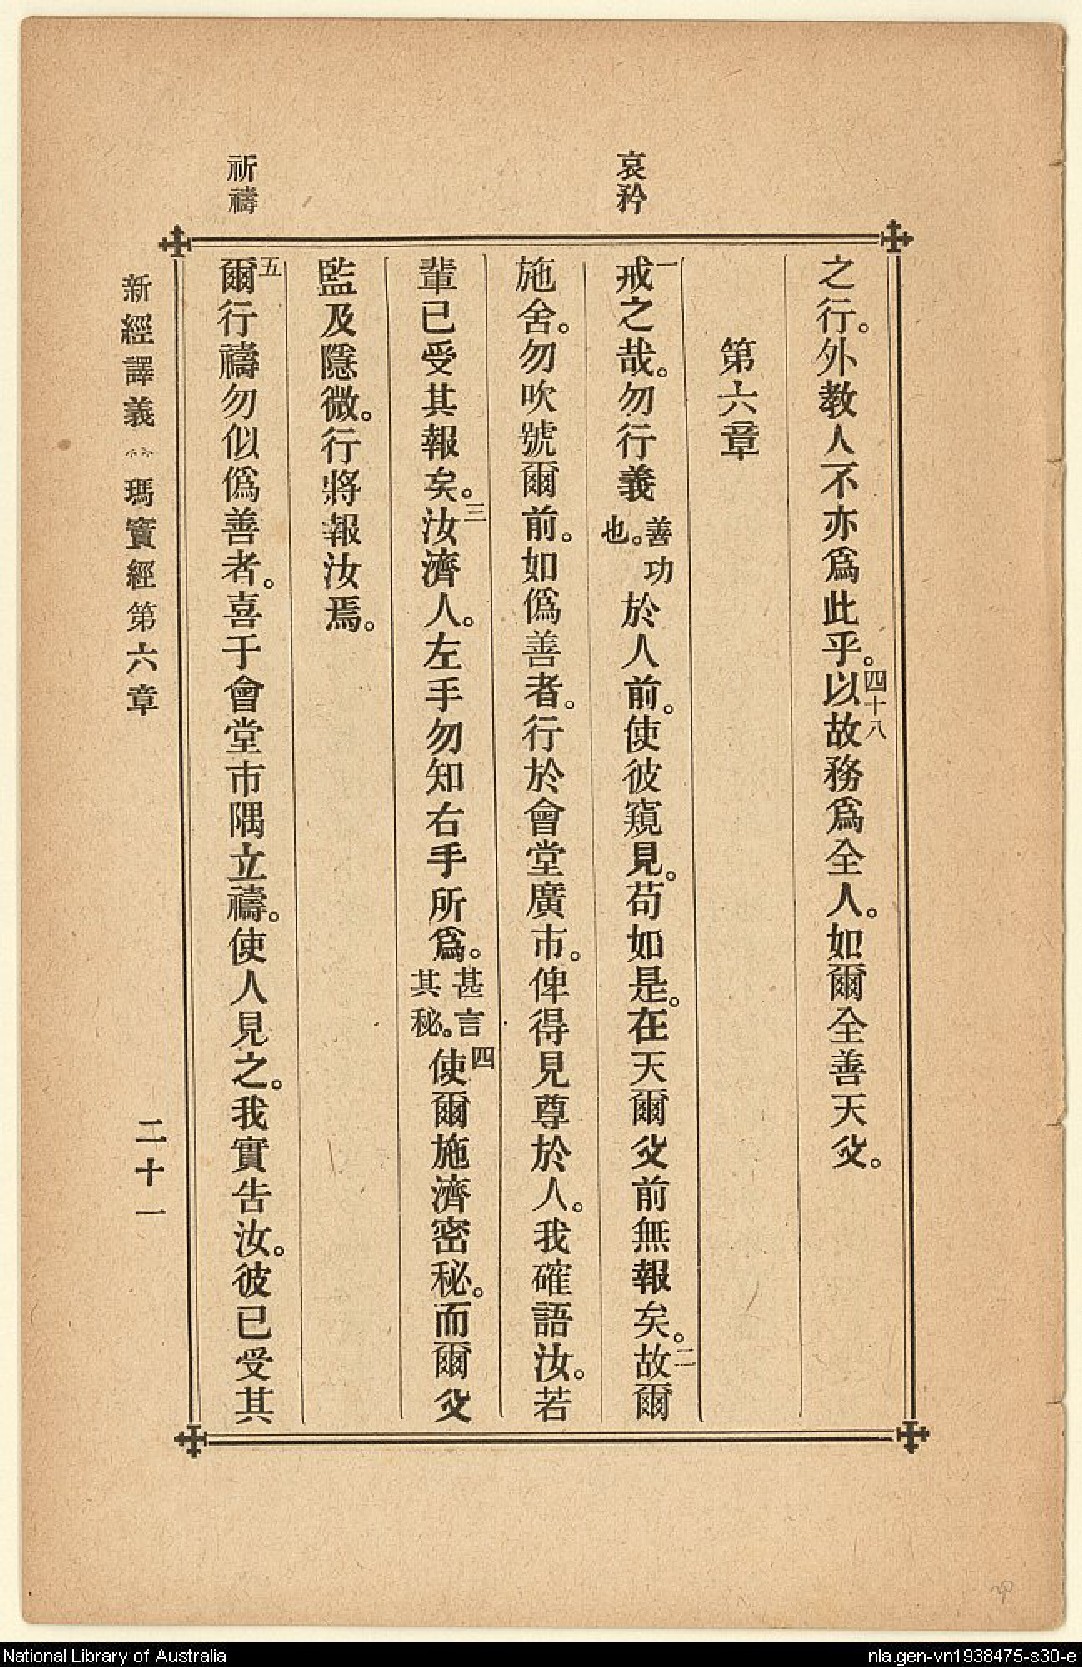 哀矜
祈禱
之行。外教人不亦爲此乎。四十八以故務爲全人。如爾全善天父。
第六章
一戒之哉。勿行義善功也。於人前。使彼窺見。苟如是。在天爾父前無報矣。二故爾
施舍。勿吹號爾前。如僞善者。行於會堂廣市。俾得見尊於人。我確語汝。若
輩已受其報矣。三汝濟人。左手勿知右手所爲。甚言其秘。四使爾施濟密秘。而爾父
監及隱微。行將報汝焉。
五爾行禱勿似僞善者。喜于會堂市隅立禱。使人見之。我實告汝。彼已受其
新經譯義 瑪竇經第六章
二十一
National Library of Australia
nla.gen-vn1938475-s30-e